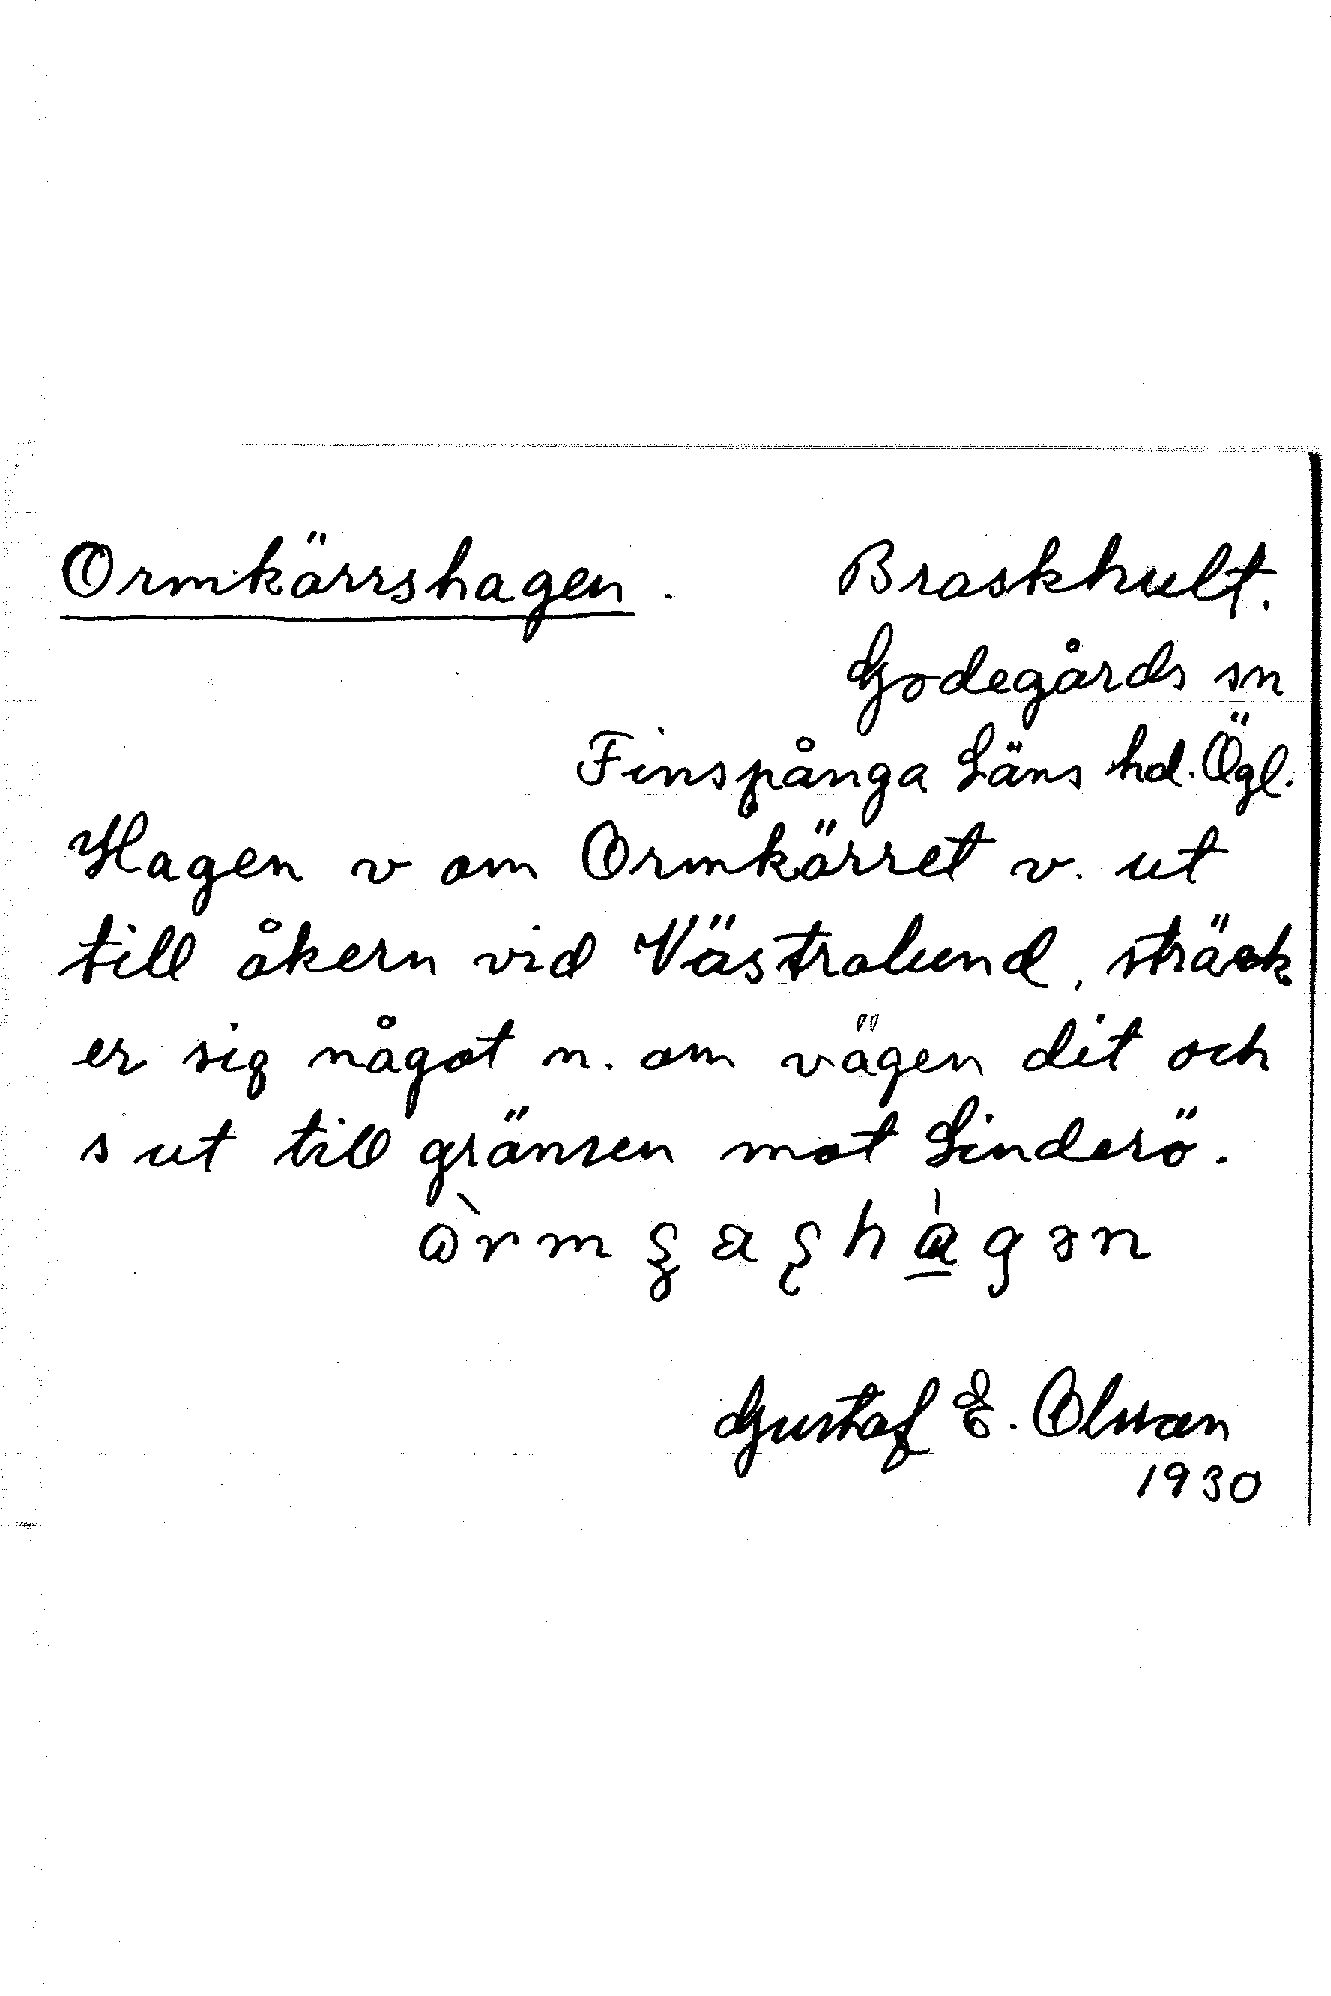 Ormkärrshagen. Braskhult.
Godegårds sn
Finspånga Läns hd. Ögl.
Hagen v om Ormkärret v. ut
till åkern vid Västralund, sträck
er sig något n. om vägen dit och
s ut till gränsen mot Linderö.
Gustaf E. Olsson
1930